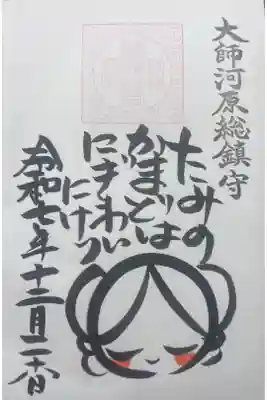 大師河原総鎮守
たみの
かまどは
にぎわい
にけり
令和七年十二月二十日